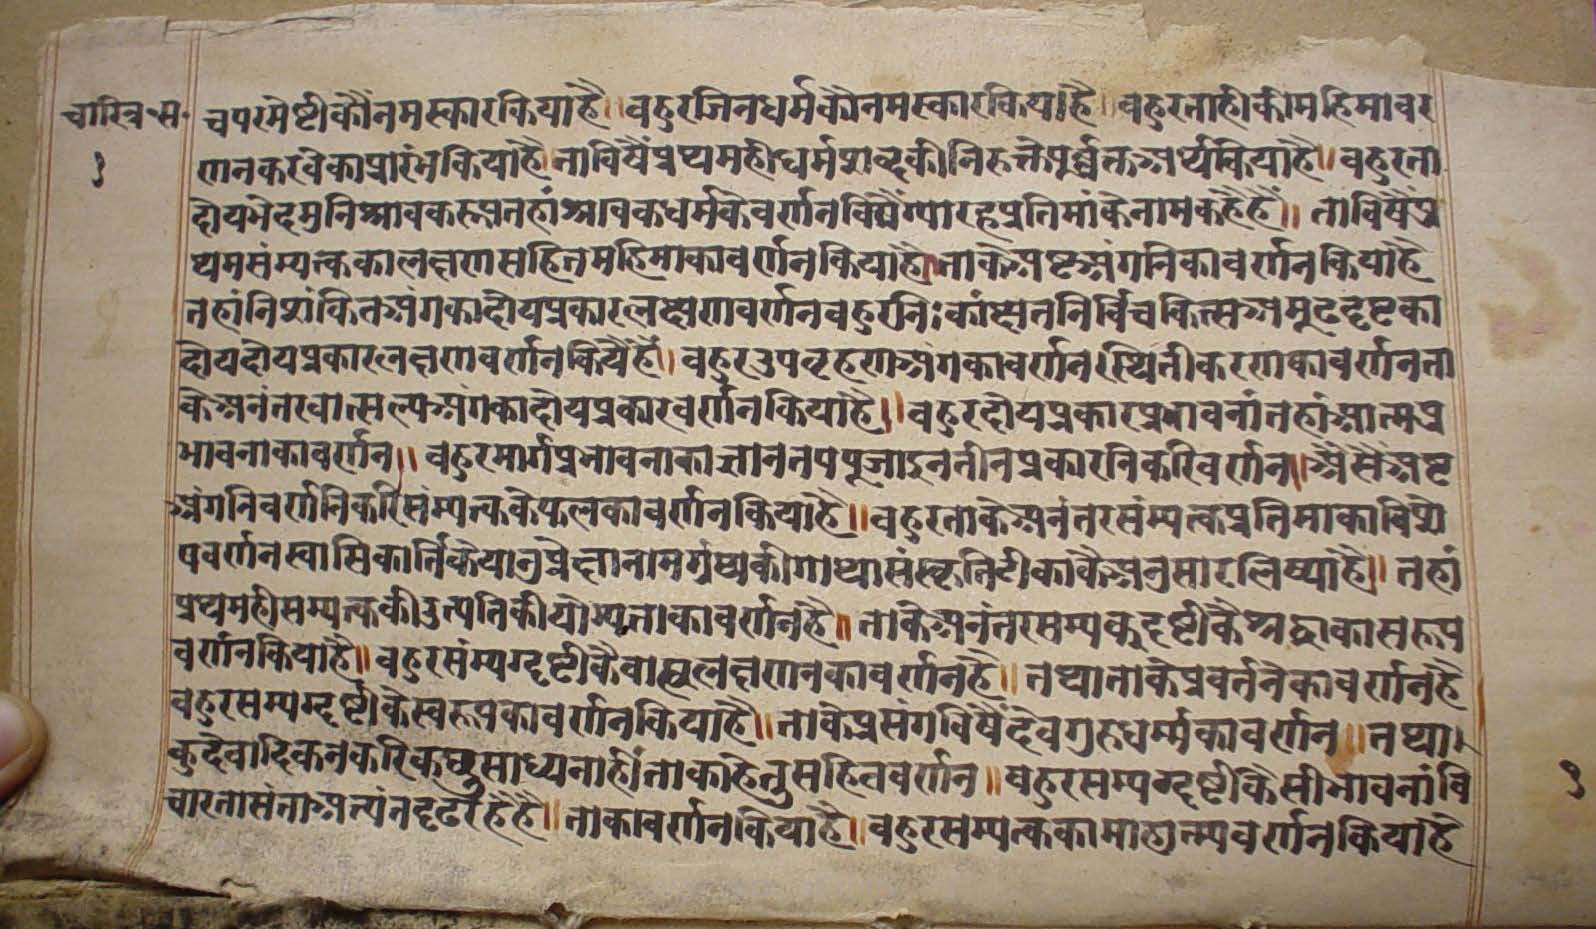 चारित्र सा॰
१
चपरमेष्टीकौंनमस्कारकियाहै॥ बहुरजिनधर्मकौनमस्कारकियाहै॥ बहुरताहीकीमहिमावर
णनकरवेकाप्रारंभकियाहै॥ताविषैंप्रथमहीधर्मशब्दकीनिरुक्तिपूर्व्वकअर्थकियाहै॥ बहुरता
दोयभेदमुनिश्रावकरूपतहांश्रावकधर्मकेवर्णनविषैंग्यारहप्रतिमांकेनामकहैहैं॥ ताविषैंप्र
थमसंम्यक्तकालक्षणसहितमहिमाकावर्णनकियाहै॥ताकेअष्टअंगनिकावर्णनकियाहै
तहांनिशंकितअंगकादोयप्रकारलक्षणवर्णनबहुरनिःकांक्षितनिर्विचकित्सअमूढदृष्टका
दोयदोयप्रकारलक्षणवर्णनकियेहैं॥ बहुरउपवृहणअंगकावर्णनस्थितीकरणकावर्णनता
केअनंतरवात्सल्यअंगकादोयप्रकारवर्णनकियाहै॥ बहुरदोयप्रकारप्रभावनांतहांआत्मप्र
भावनाकावर्णन॥ बहुरमार्गप्रभावनाकाज्ञानतपपूजाइनतीनप्रकारनिकरिवर्णन॥ऐसैंअष्ट
अंगनिवर्णनिकरिसंम्यक्तकेफलकावर्णनकियाहै॥ बहुरताकेअनंतरसंम्यक्तप्रतिमाकाविशे
षवर्णनस्वामिकार्तिकेयानुप्रेक्षानामग्रंथकीगाथासंस्कृतटीकाकैअनुसारलिष्याहै॥ तहां
प्रथमहीसम्यक्तकीउत्पतिकीयोग्यताकावर्णनहै॥ ताकेअनंतरसम्यकदृष्टीकैश्रद्धाकासरूप
वर्णनकियाहै॥ बहुरसंम्यग्दृष्टीकैवाह्यलक्षणनकावर्णनहै॥ तथाताकेप्रवर्तनेकावर्णनहै
बहुरसम्यग्दृष्टीकैस्वरूपकावर्णनकियाहै॥ ताकेप्रसंगविषैंदेवगुरुधर्म्मकावर्णन॥ तथा
कुदेवादिकनकरिकछुसाध्यनाहींताकाहेतुसहितवर्णन॥ बहुरसम्यग्दृष्टीकैसीभावनांवि
चारतासंताअत्यंतदृढरहैहै॥ ताकावर्णनकियाहै॥ बहुरसम्यक्तकामाहात्म्यवर्णनकियाहै
१